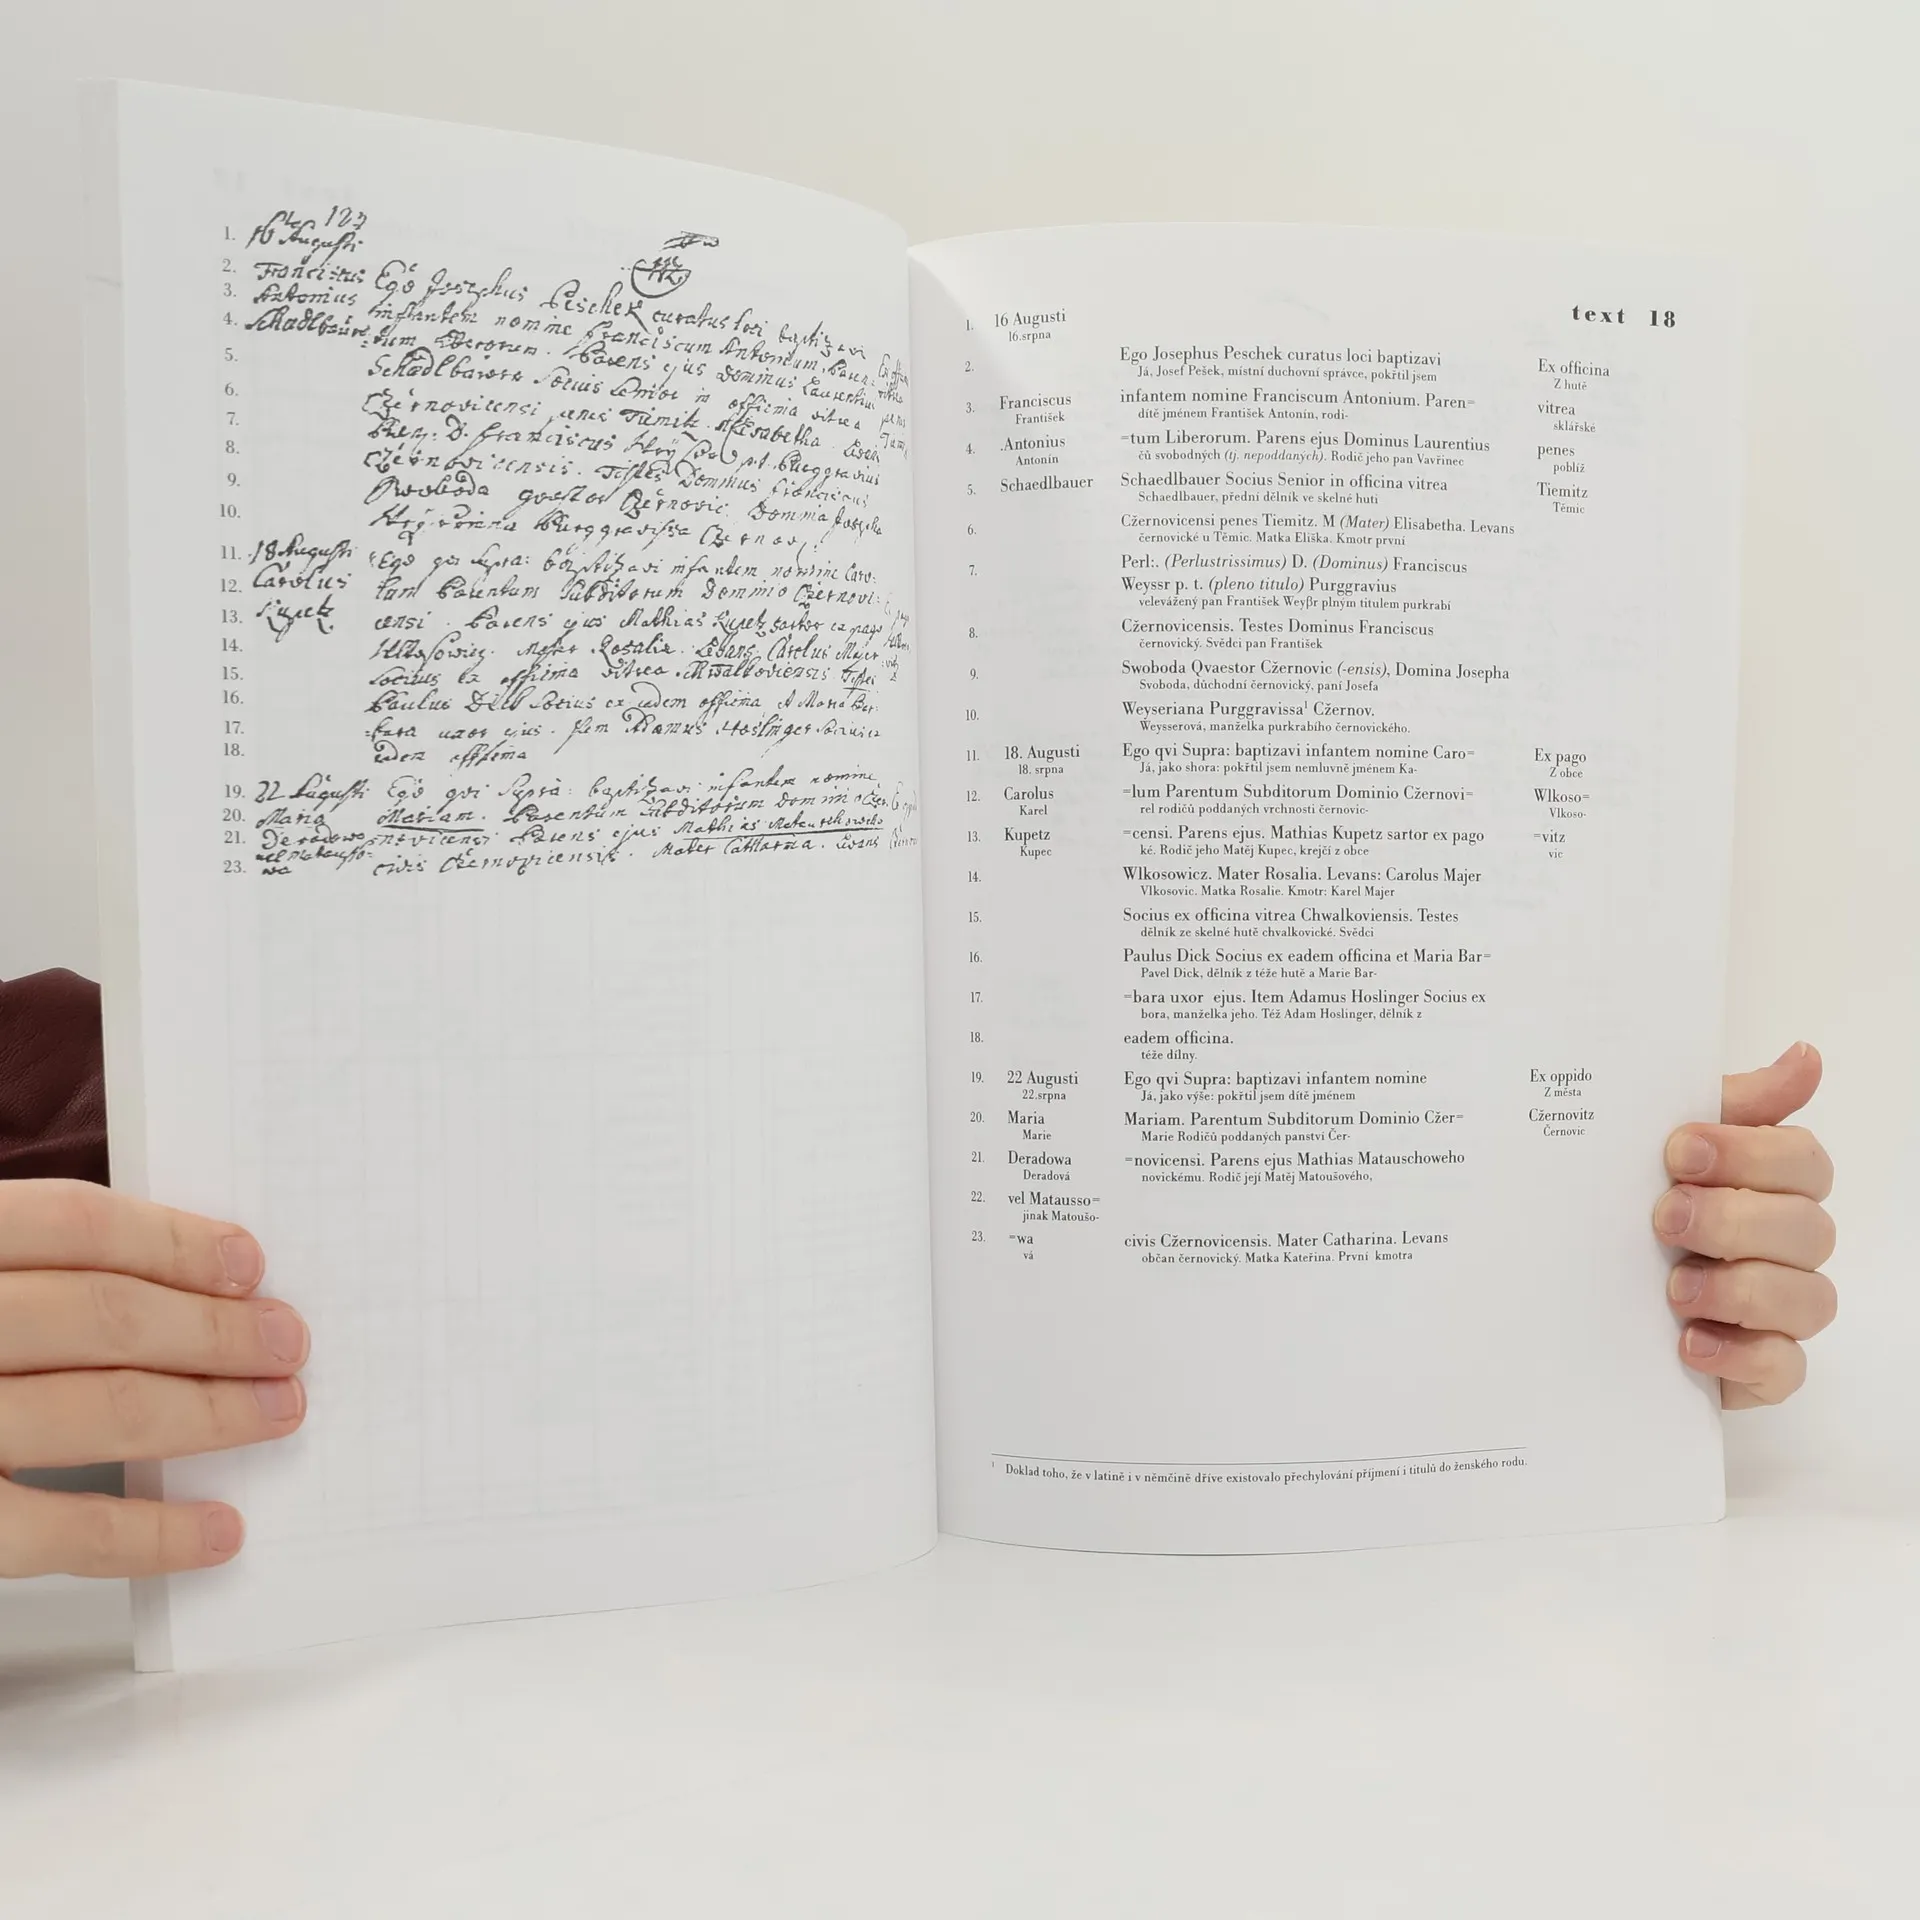 1. 16 Augusti 122
2. Franciscus Ego Josephus Peschek curatus loci baptizavi
3. Antonius infantem nomine Franciscum Antonium. Paren=
4. Schadlbauer =tum Liberorum. Parens ejus Dominus Laurentius
5. Schadlbawer Socius Senior in officina vitrea
6. Czernovicensi penes Tiemitz. M Elisabetha. Levans
7. D. Franciscus p.t. Purggravius
8. Czernovicensis. Testes Dominus Franciscus
9. Swoboda qvestor Czernovic. Domina Josepha
10. Purggravissa Czernov.
11. 18 Augusti Ego qvi supra: baptizavi infantem nomine Caro=
12. Carolus lum Parentum Subditorum Dominio Czernovi=
13. Kupetz censi. Parens ejus Mathias Kupetz sartor ex pago
14. Wlkosowicz. Mater Rosalia. Levans Carolus Majer
15. Socius ex officina vitrea Chwalkoviensis Testes
16. Paulus Dick Socius ex eadem officina et Maria Bar=
17. =bara uxor ejus. Item Adamus Hoslinger Socius ex
18. eadem officina
19. 22 Augusti Ego qvi Supra: baptizavi infantem nomine
20. Maria Mariam. Parentum Subditorum Dominio Czer=
21. Deradowa =novicensi Parens ejus Mathias Matauschoweho
vel Matausso=
23. wa civis Czernovicensis. Mater Catharina. Levans
text 18
1. 16 Augusti
16.srpna
2. Ego Josephus Peschek curatus loci baptizavi Ex officina
Já, Josef Pešek, místní duchovní správce, pokřtil jsem Z hutě
3. Franciscus infantem nomine Franciscum Antonium. Paren= vitrea
František dítě jménem František Antonín, rodi- sklářské
4. .Antonius =tum Liberorum. Parens ejus Dominus Laurentius penes
Antonín čů svobodných (tj. nepoddaných). Rodič jeho pan Vavřinec poblíž
5. Schaedlbauer Schaedlbauer Socius Senior in officina vitrea Tiemitz
Schaedlbauer, přední dělník ve skelné huti Těmic
6. Cžernovicensi penes Tiemitz. M (Mater) Elisabetha. Levans
černovické u Těmic. Matka Eliška. Kmotr první
7. Perl:. (Perlustrissimus) D. (Dominus) Franciscus
Weyssr p. t. (pleno titulo) Purggravius
velevážený pan František Weyβr plným titulem purkrabí
8. Cžernovicensis. Testes Dominus Franciscus
černovický. Svědci pan František
9. Swoboda Qvaestor Cžernovic (-ensis), Domina Josepha
Svoboda, důchodní černovický, paní Josefa
10. Weyseriana Purggravissa¹ Cžernov.
Weysserová, manželka purkrabího černovického.
11. 18. Augusti Ego qvi Supra: baptizavi infantem nomine Caro= Ex pago
18. srpna Já, jako shora: pokřtil jsem nemluvně jménem Ka- Z obce
12. Carolus =lum Parentum Subditorum Dominio Cžernovi= Wlkoso=
Karel rel rodičů poddaných vrchnosti černovic- Vlkoso-
13. Kupetz =censi. Parens ejus. Mathias Kupetz sartor ex pago =vitz
Kupec ké. Rodič jeho Matěj Kupec, krejčí z obce vic
14. Wlkosowicz. Mater Rosalia. Levans: Carolus Majer
Vlkosovic. Matka Rosalie. Kmotr: Karel Majer
15. Socius ex officina vitrea Chwalkoviensis. Testes
dělník ze skelné hutě chvalkovické. Svědci
16. Paulus Dick Socius ex eadem officina et Maria Bar=
Pavel Dick, dělník z téže hutě a Marie Bar-
17. =bara uxor ejus. Item Adamus Hoslinger Socius ex
bora, manželka jeho. Též Adam Hoslinger, dělník z
18. eadem officina.
téže dílny.
19. 22 Augusti Ego qvi Supra: baptizavi infantem nomine Ex oppido
22.srpna Já, jako výše: pokřtil jsem dítě jménem Z města
20. Maria Mariam. Parentum Subditorum Dominio Cžer= Cžernovitz
Marie Marie Rodičů poddaných panství Čer- Černovic
21. Deradowa =novicensi. Parens ejus Mathias Matauschoweho
Deradová novickému. Rodič její Matěj Matoušového,
22. vel Matausso=
jinak Matoušo-
23. =wa civis Cžernovicensis. Mater Catharina. Levans
vá občan černovický. Matka Kateřina. První kmotra
¹ Doklad toho, že v latině i v němčině dříve existovalo přechylování příjmení i titulů do ženského rodu.